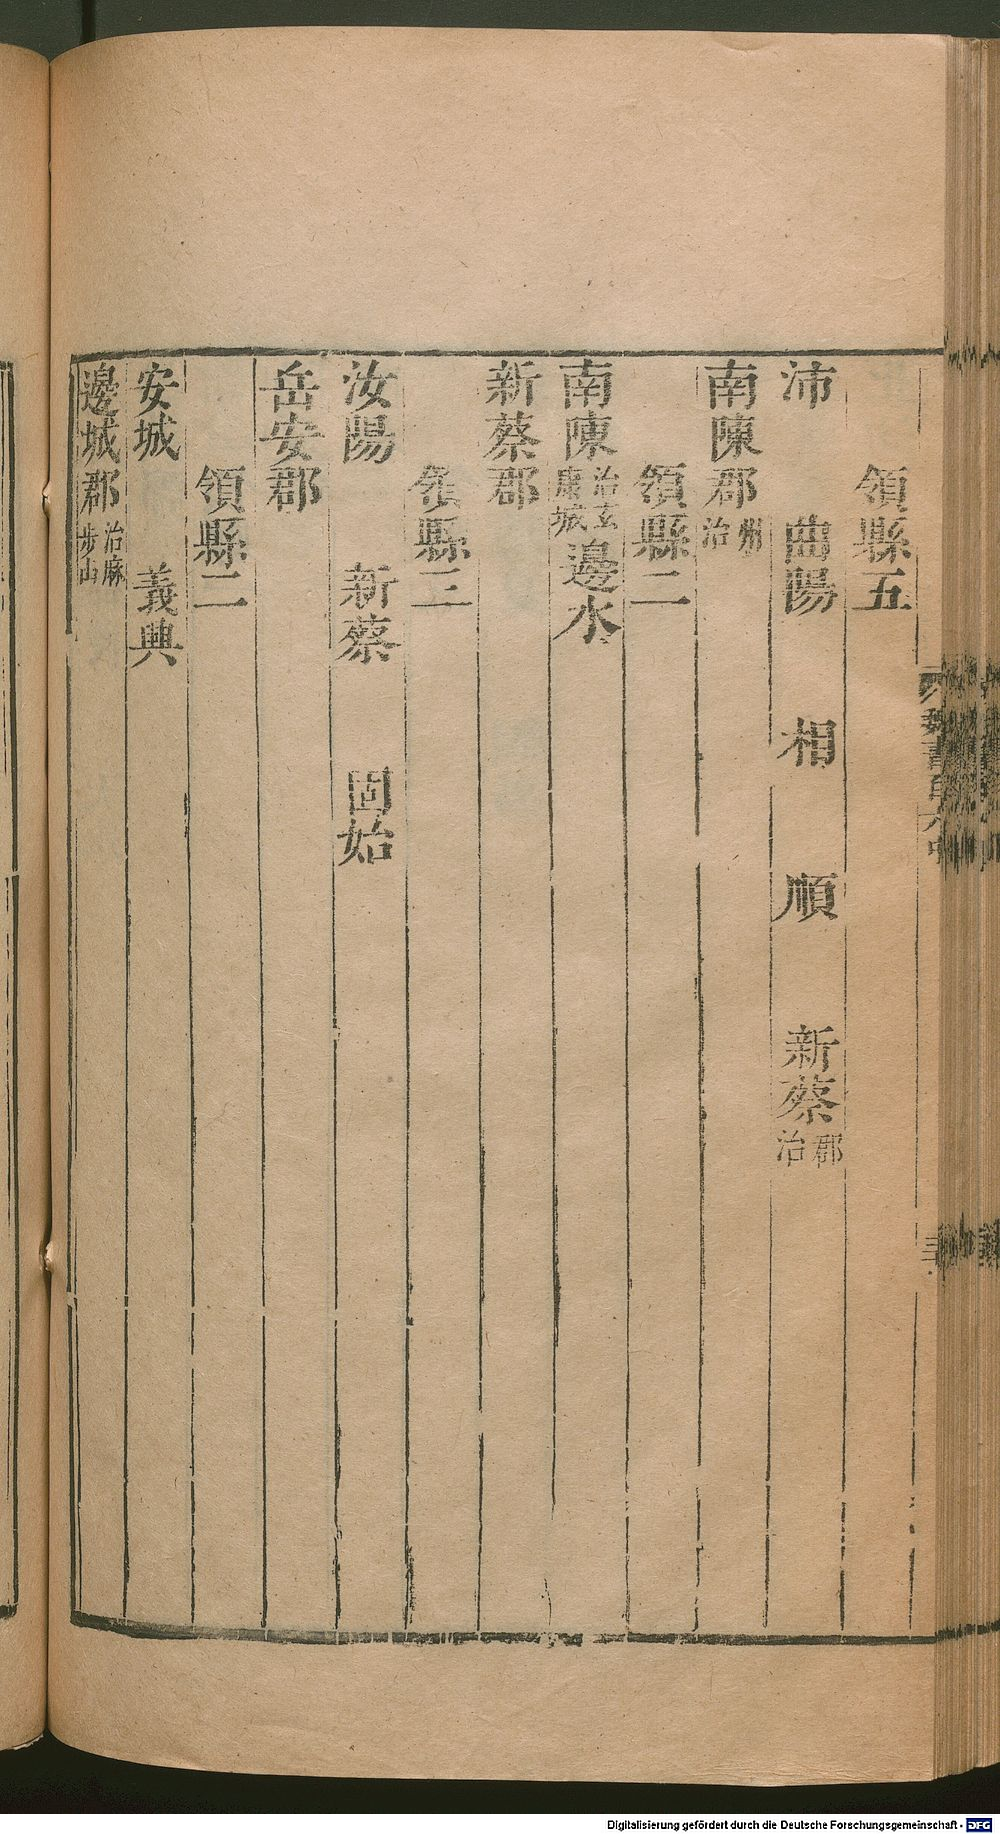 領縣五
沛 曲陽 相 順 新蔡郡治
南陳郡州治
領縣二
南陳治玄康城 邊水
新蔡郡
領縣三
汝陽 新蔡 固始
岳安郡
領縣二
安城 義興
邊城郡治麻步山
魏書百六中
Digitalisierung gefördert durch die Deutsche Forschungsgemeinschaft - DFG